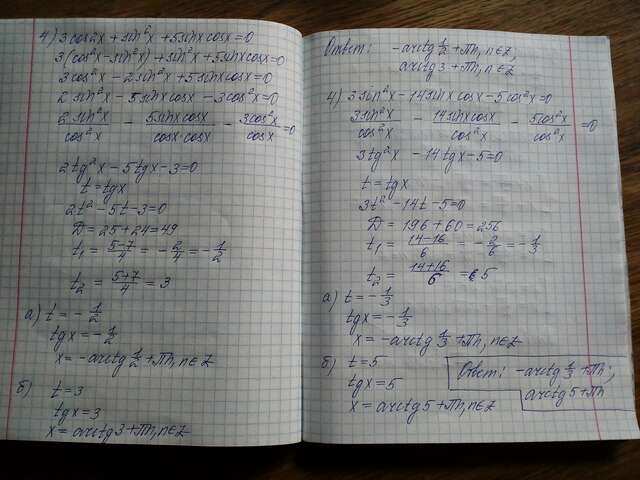 4) 3cos2x + sin²x + 5sinx cosx = 0
3(cos²x - sin²x) + sin²x + 5sinx cosx = 0
3cos²x - 2sin²x + 5sinx cosx = 0
2sin²x - 5sinx cosx - 3cos²x = 0
2sin²x/cos²x - 5sinx cosx/cosx·cosx - 3cos²x/cosx = 0
2tg²x - 5tgx - 3 = 0
t = tgx
2t² - 5t - 3 = 0
D = 25 + 24 = 49
t₁ = (5-7)/4 = -2/4 = -1/2
t₂ = (5+7)/4 = 3
а) t = -1/2
tgx = -1/2
x = -arctg 1/2 + πn, n∈Z
б) t = 3
tgx = 3
x = arctg 3 + πn, n∈Z
Ответ: -arctg 1/2 + πn, n∈Z,
arctg 3 + πn, n∈Z
4) 3sin²x - 14sinx cosx - 5cos²x = 0
3sin²x/cos²x - 14sinx cosx/cos²x - 5cos²x/cos²x = 0
3tg²x - 14tgx - 5 = 0
t = tgx
3t² - 14t - 5 = 0
D = 196 + 60 = 256
t₁ = (14-16)/6 = -2/6 = -1/3
t₂ = (14+16)/6 = 5
а) t = -1/3
tgx = -1/3
x = -arctg 1/3 + πn, n∈Z
б) t = 5
tgx = 5
x = arctg 5 + πn, n∈Z
Ответ: -arctg 1/3 + πn;
arctg 5 + πn